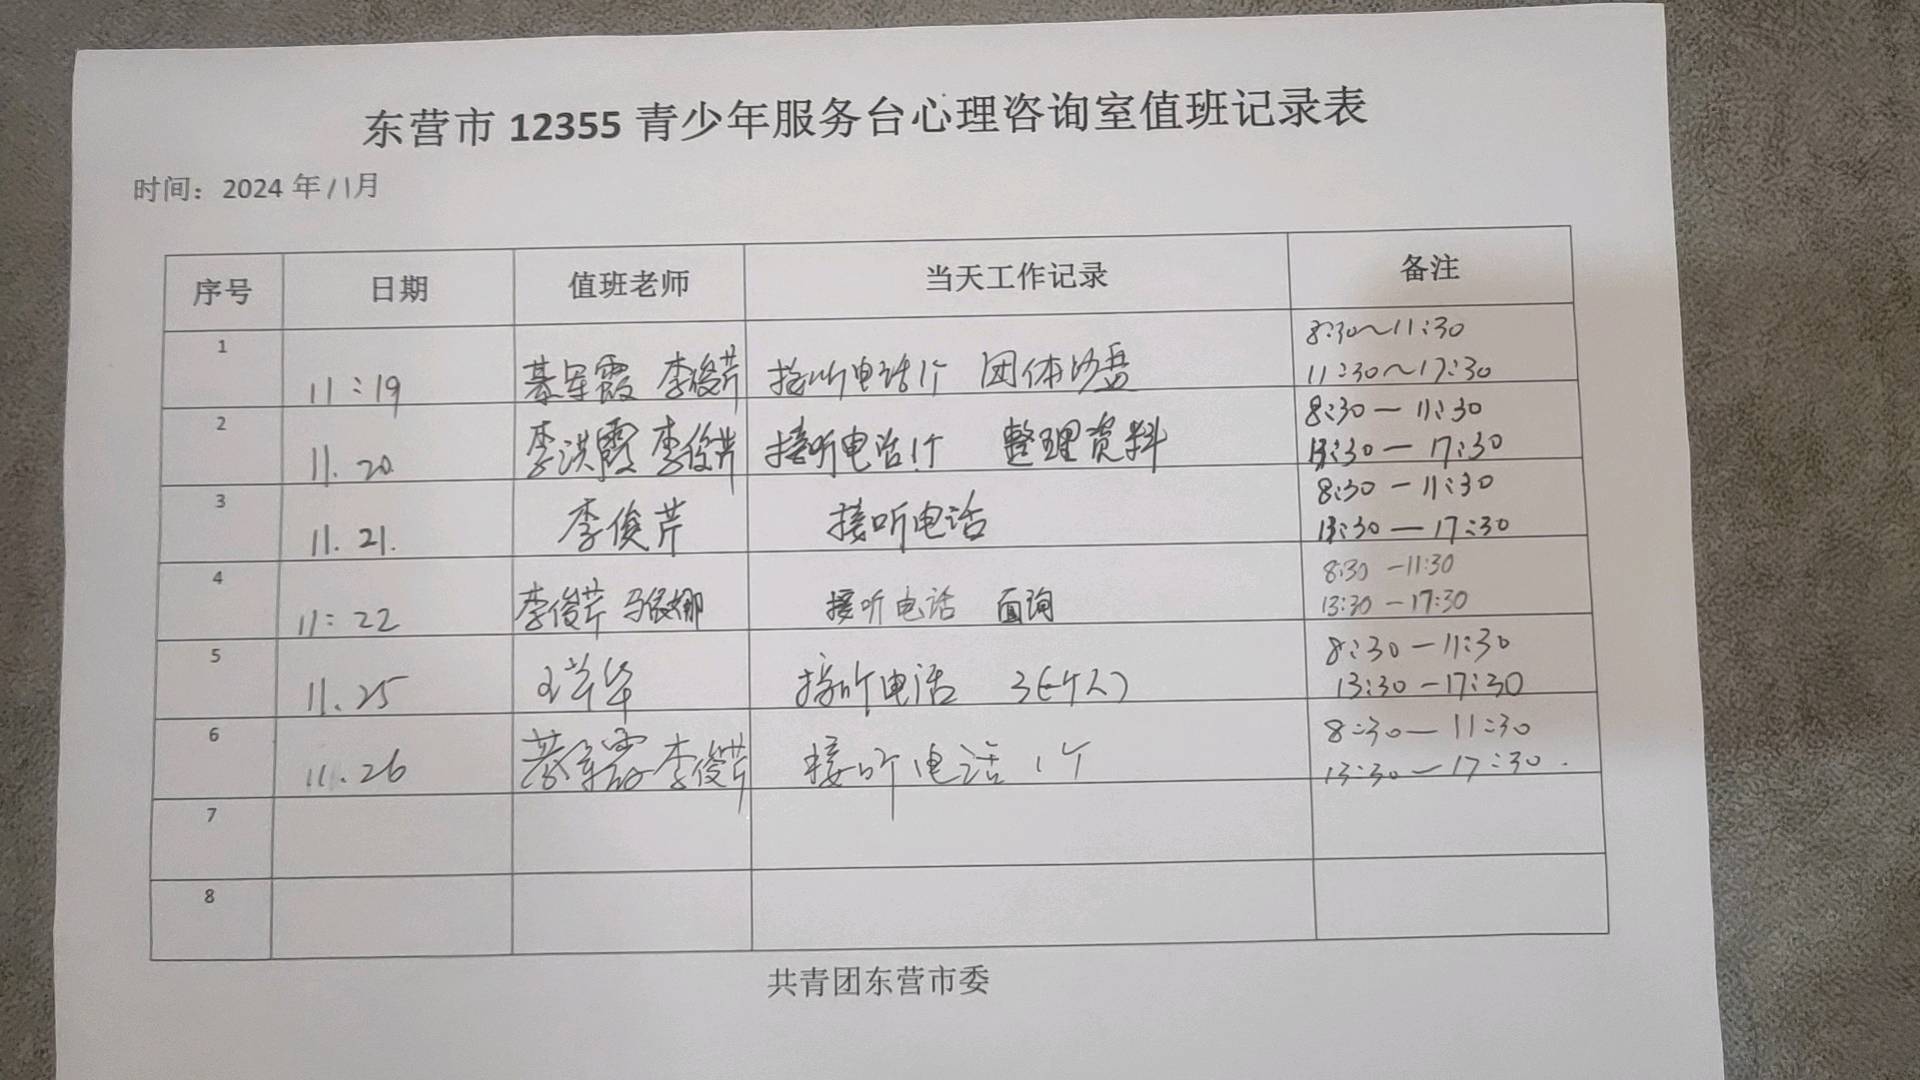 东营市 12355 青少年服务台心理咨询室值班记录表
时间：2024 年 11月
序号 日期 值班老师 当天工作记录 备注
1 11:19 綦军霞 李俊芹 接听电话1个 团体沙盘 8:30~11:30
11:30~17:30
2 11.20 李洪霞 李俊芹 接听电话1个 整理资料 8:30—11:30
13:30—17:30
3 11.21. 李俊芹 接听电话 8:30—11:30
13:30—17:30
4 11:22 李俊芹 接听电话 面询 8:30—11:30
13:30—17:30
5 11.25 接听电话 8:30—11:30
13:30—17:30
6 11.26 李俊芹 接听电话 1个 8:30—11:30
13:30—17:30.
7
8
共青团东营市委